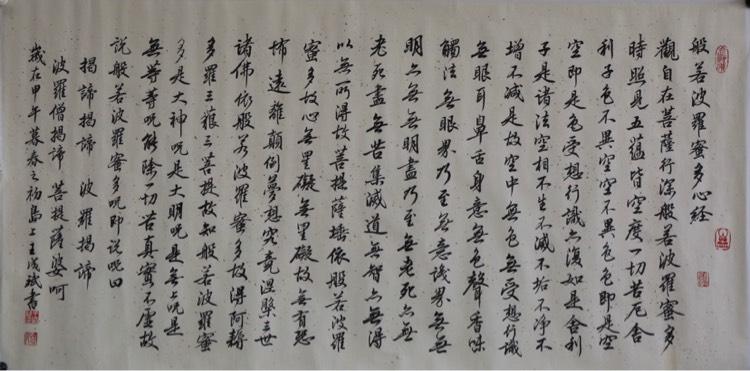 般若波羅蜜多心经
觀自在菩薩行深般若波羅蜜多
時照見五蘊皆空度一切苦厄舍
利子色不異空空不異色色即是空
空即是色受想行識亦復如是舍利
子是諸法空相不生不滅不垢不净不
增不減是故空中無色無受想行識
無眼耳鼻舌身意無色聲香味
觸法無眼界乃至無意識界無無
明亦無無明盡乃至無老死亦無
老死盡無苦集滅道無智亦無得
以無所得故菩提薩埵依般若波羅
蜜多故心無罣礙無罣礙故無有恐
怖遠離顛倒夢想究竟涅槃三世
諸佛依般若波羅蜜多故得阿耨
多羅三藐三菩提故知般若波羅蜜
多是大神呪是大明呪是無上呪是
無等等呪能除一切苦真實不虛故
說般若波羅蜜多呪即說呪曰
揭諦揭諦 波羅揭諦
波羅僧揭諦 菩提薩婆呵
歲在甲午暮春之初島上王成斌書